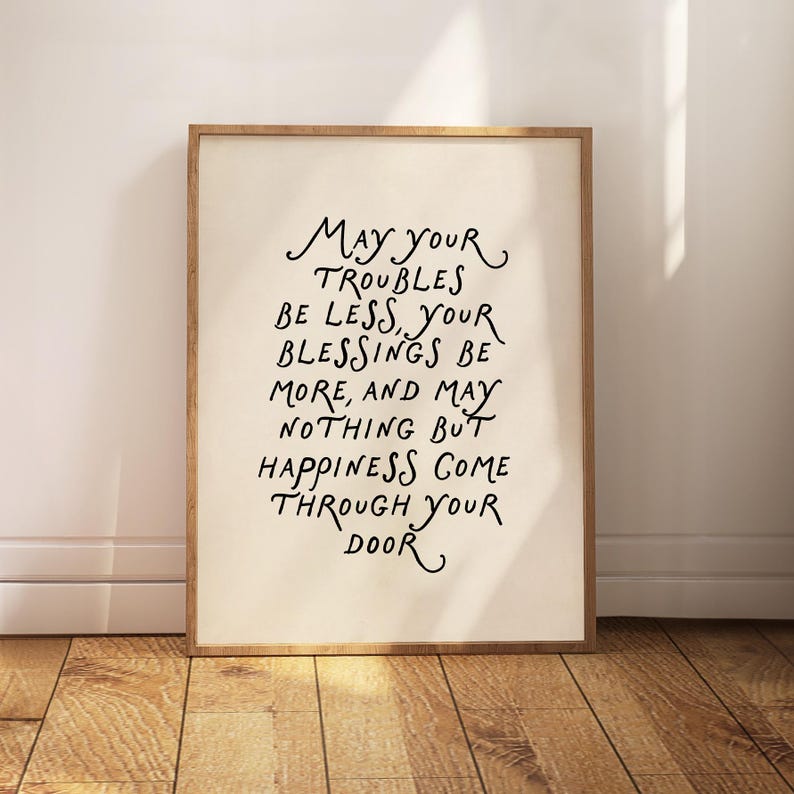 MAY YOUR
TROUBLES
BE LESS, YOUR
BLESSINGS BE
MORE, AND MAY
NOTHING BUT
HAPPINESS COME
THROUGH YOUR
DOOR